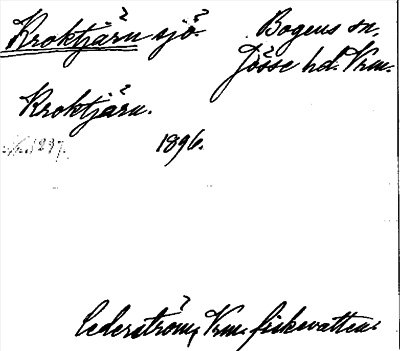 Kroktjärn sjö.
Bogens sn.
Jösse hd. Vrm.
Kroktjärn.
1896.
Cederström, Vrm. fiskevatten.